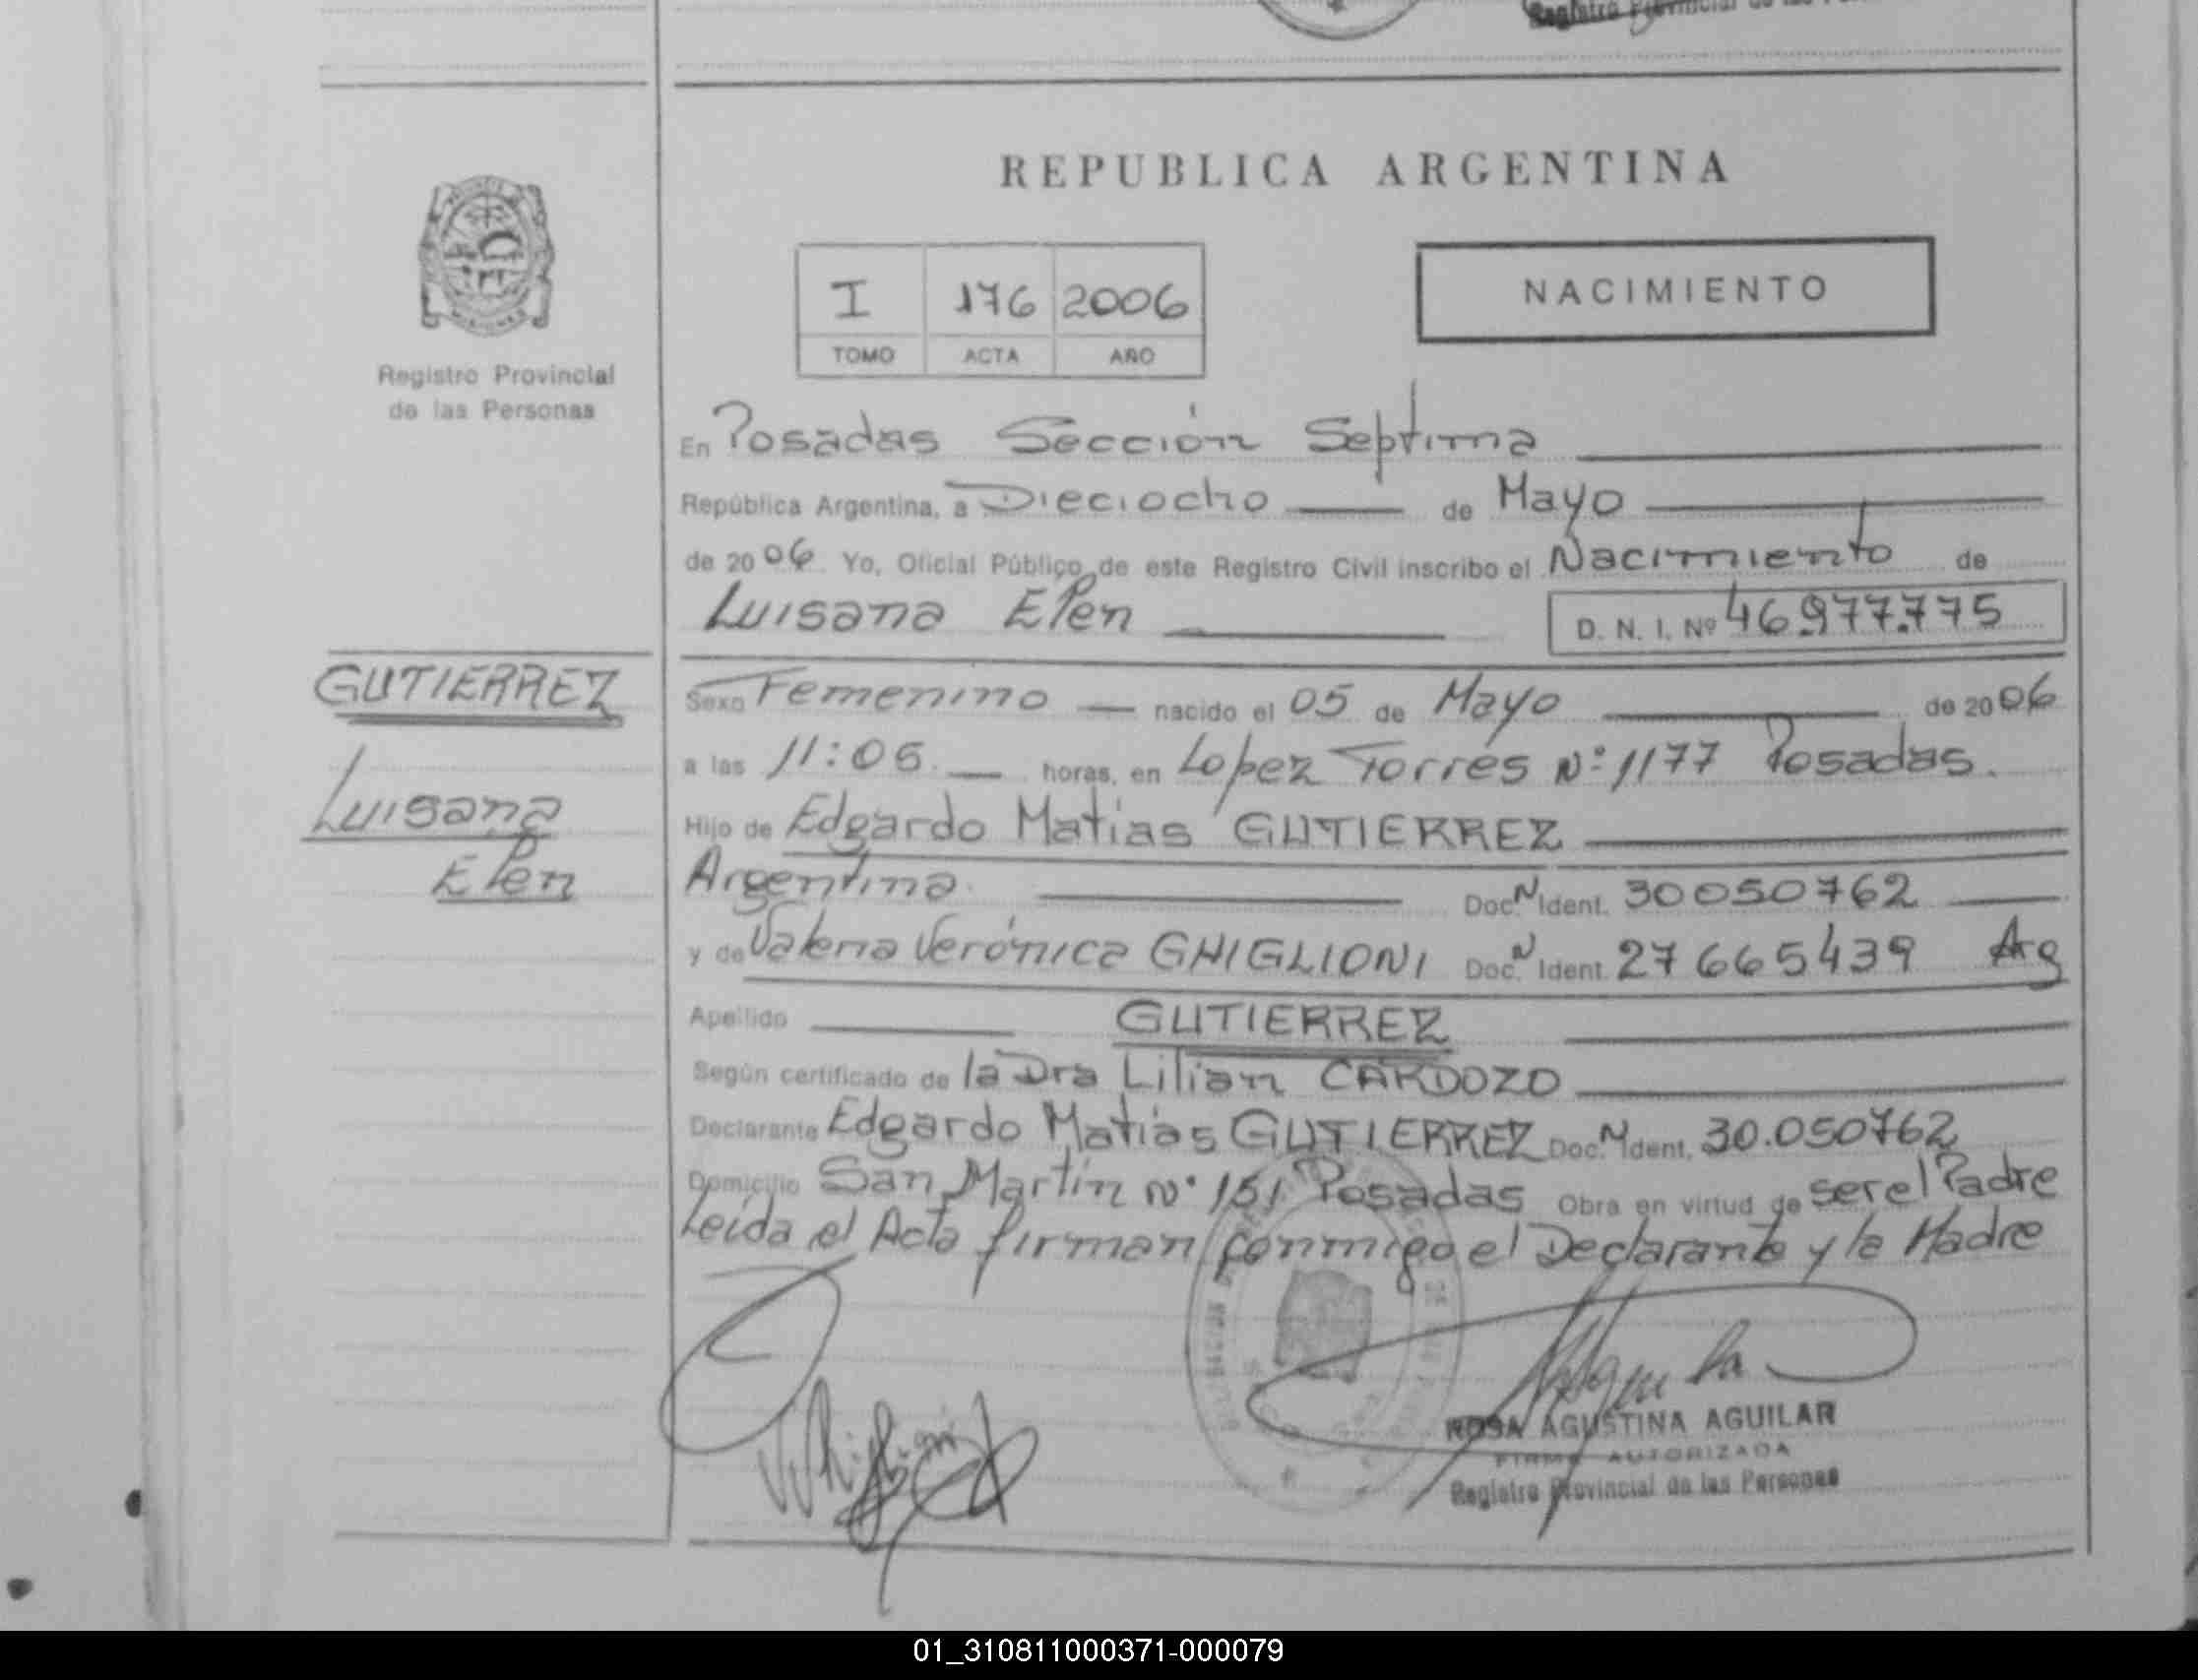 Registro Provincial de las
REPUBLICA ARGENTINA
I 176 2006
TOMO ACTA AÑO
NACIMIENTO
Registro Provincial
de las Personas
En Posadas Sección Septima
República Argentina, a Dieciocho de Mayo
de 2006 Yo, Oficial Público de este Registro Civil inscribo el Nacimiento de
Luisana Elen D. N. I. Nº 46.977.775
GUTIERREZ
Luisana
Elen
Sexo Femenino nacido el 05 de Mayo de 2006
a las 11:05 horas, en Lopez Torres Nº 1177 Posadas.
Hijo de Edgardo Matias GUTIERREZ
Argentina Doc. N Ident. 30050762
y de Valeria Verónica GHIGLIONI Doc. N Ident. 27665439 Arg
Apellido GUTIERREZ
Según certificado de la Dra Lilian CARDOZO
Declarante Edgardo Matias GUTIERREZ Doc. N Ident. 30.050762
Domicilio San Martín Nº 151 Posadas Obra en virtud de ser el Padre
Leída el Acta firman conmigo el Declarante y la Madre
ROSA AGUSTINA AGUILAR
FIRMA AUTORIZADA
Registro Provincial de las Personas
01_310811000371-000079